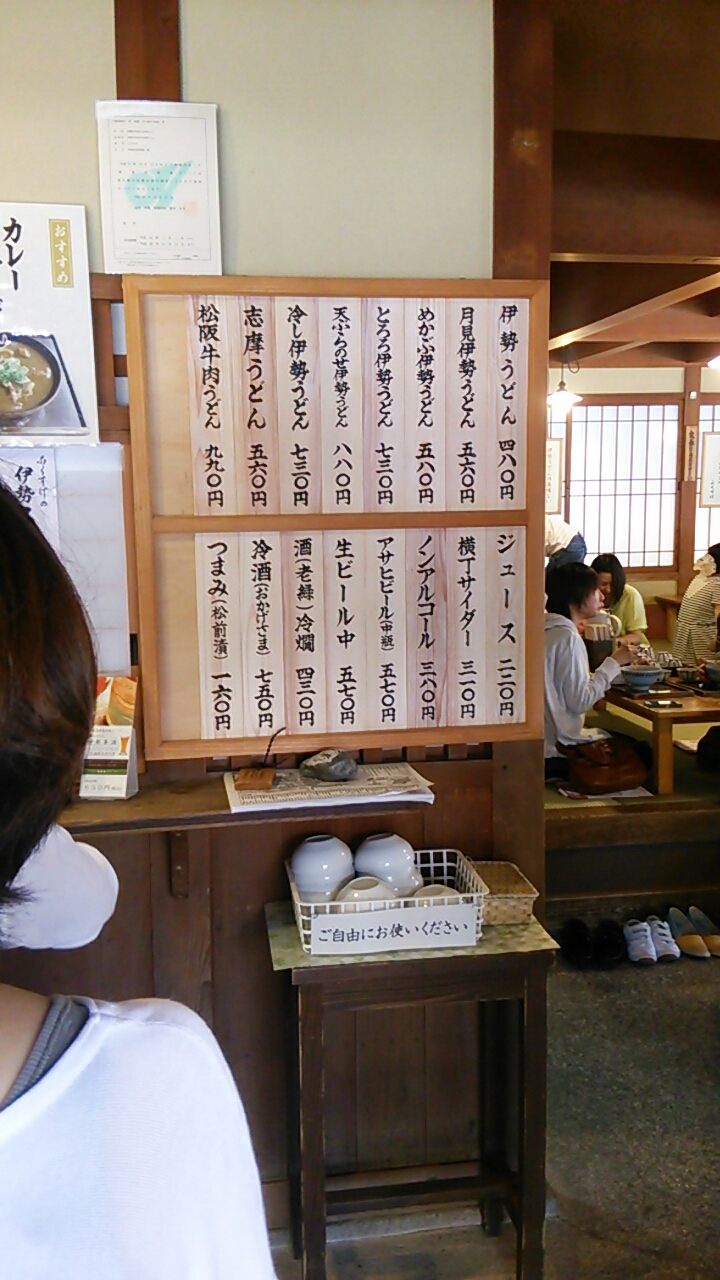 伊勢うどん 四八〇円
月見伊勢うどん 五六〇円
めかぶ伊勢うどん 五八〇円
とろろ伊勢うどん 七三〇円
天ぷらのせ伊勢うどん 八八〇円
冷し伊勢うどん 七三〇円
志摩うどん 五六〇円
松阪牛肉うどん 九九〇円
ジュース 二二〇円
横丁サイダー 三一〇円
ノンアルコール 三八〇円
アサヒビール(中瓶) 五七〇円
生ビール中 五七〇円
酒(老緑)冷燗 四三〇円
冷酒(おかげさま) 七五〇円
つまみ(松前漬) 一六〇円
おすすめ
カレー
ふくすけの
伊勢
ご自由にお使いください